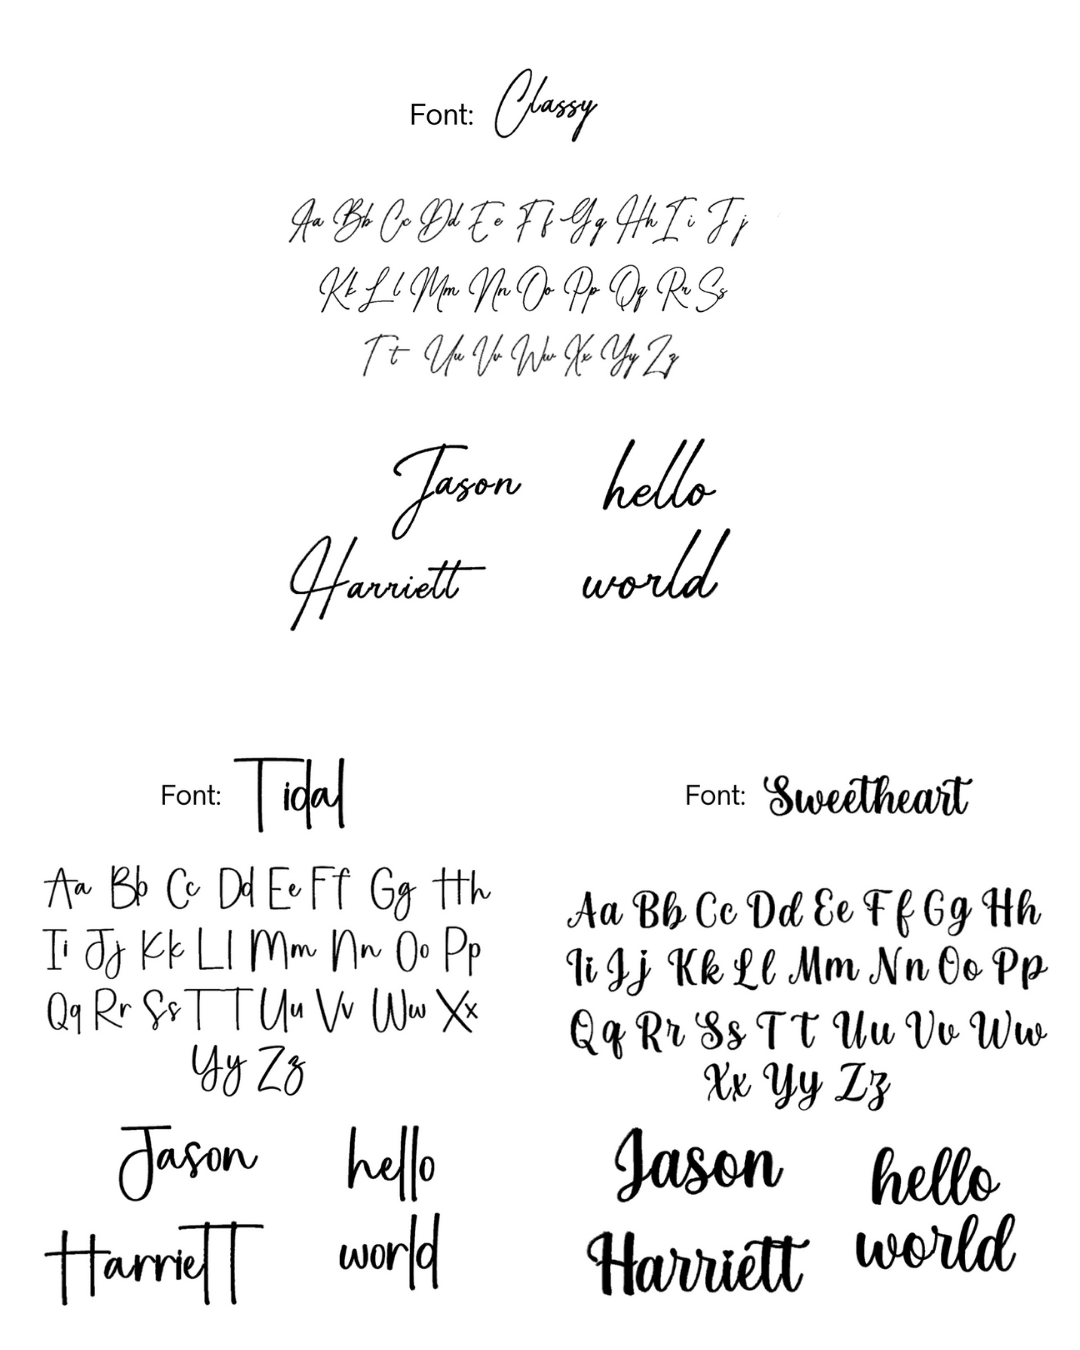 Font: Classy
Aa Bb Cc Dd Ee Ff Gg Hh Ii Jj
Kk Ll Mm Nn Oo Pp Qq Rr Ss
Tt Uu Vv Ww Xx Yy Zz
Jason hello
Harriett world
Font: Tidal
Aa Bb Cc Dd Ee Ff Gg Hh
Ii Jj Kk Ll Mm Nn Oo Pp
Qq Rr Ss TT Uu Vv Ww Xx
Yy Zz
Jason hello
Harriett world
Font: Sweetheart
Aa Bb Cc Dd Ee Ff Gg Hh
Ii Jj Kk Ll Mm Nn Oo Pp
Qq Rr Ss Tt Uu Vv Ww
Xx Yy Zz
Jason hello
Harriett world